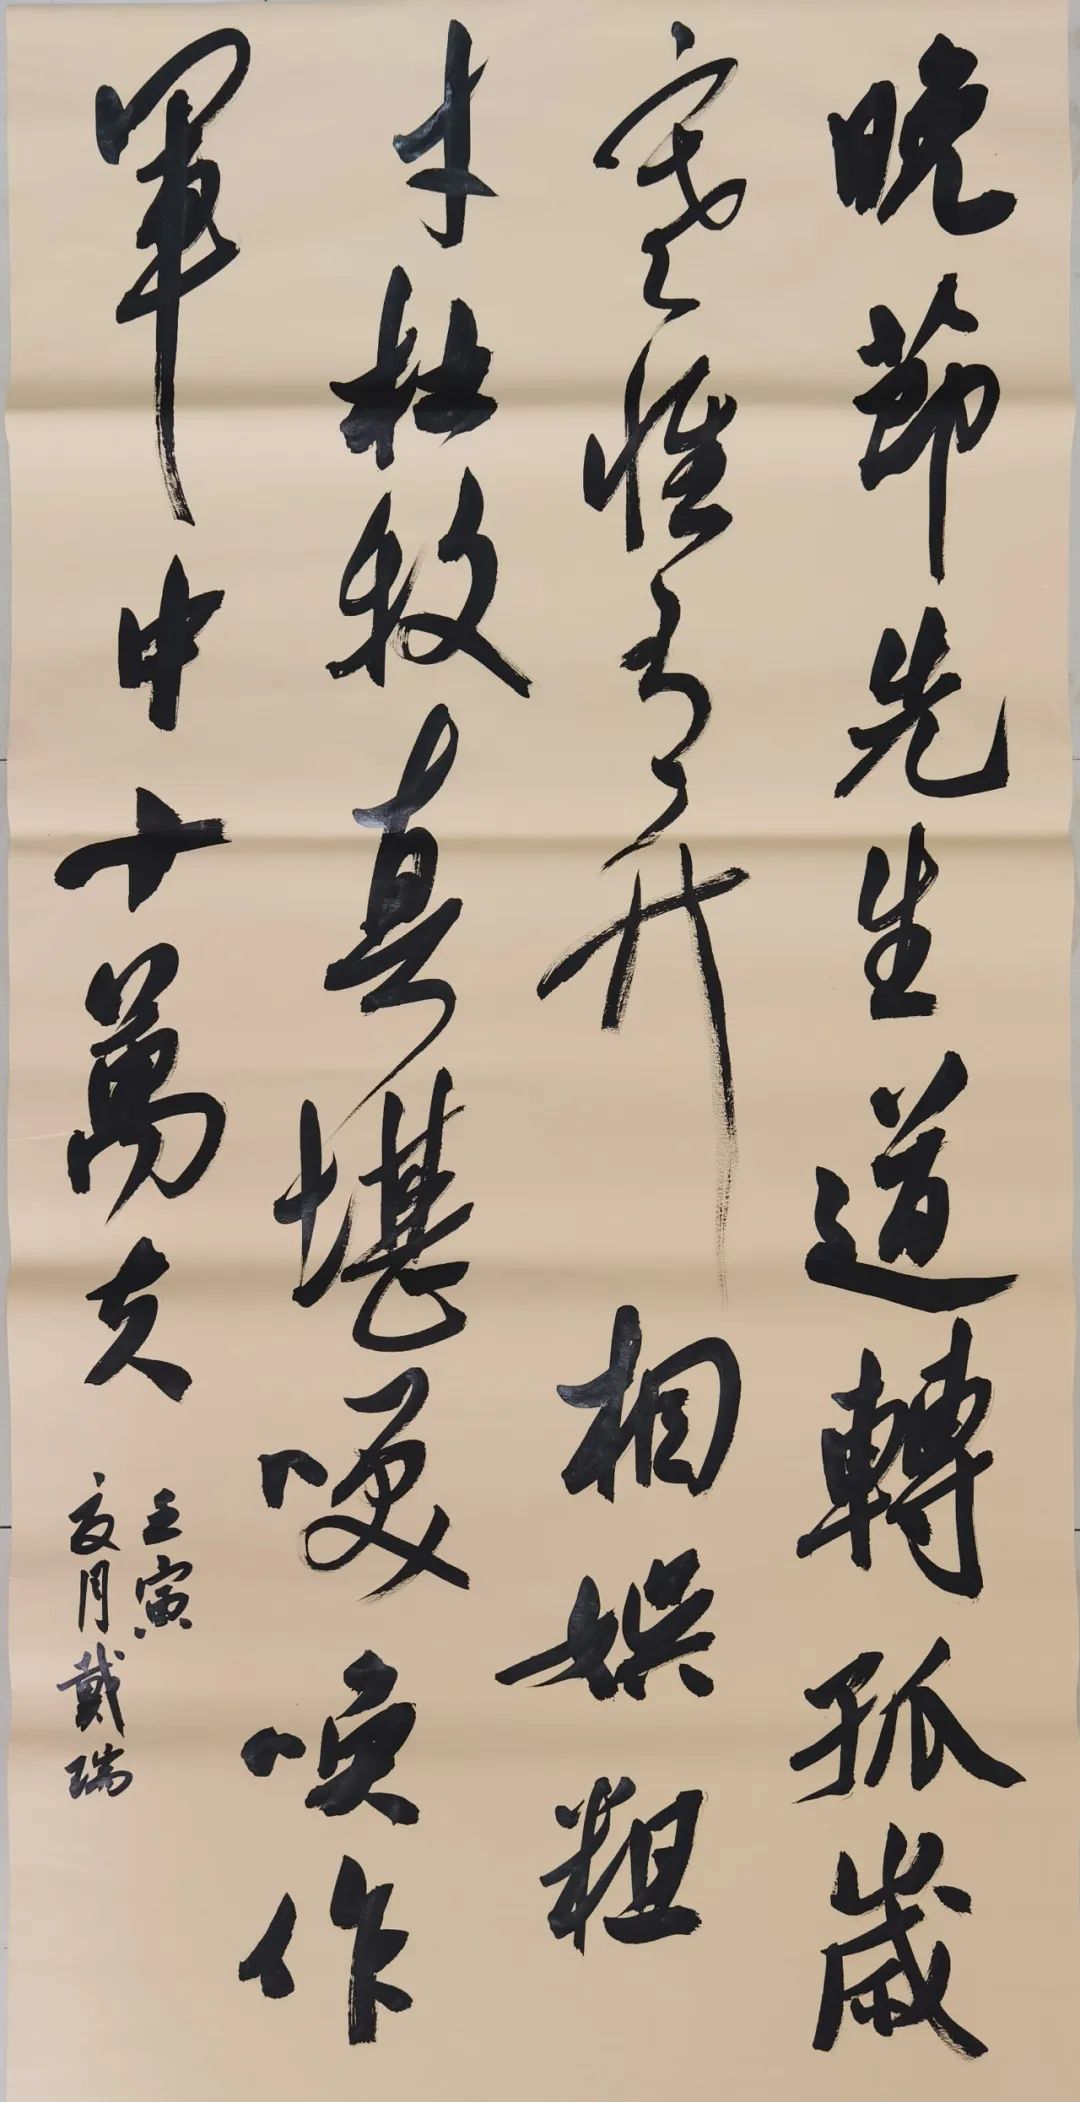 晚節先生道轉孤歲
寒惟有竹相娛粗
才杜牧真堪哽喚作
軍中十萬夫
壬寅
夏月戴瑞